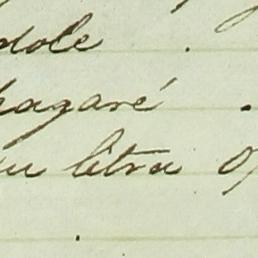 dole .
pagaré .
su letra